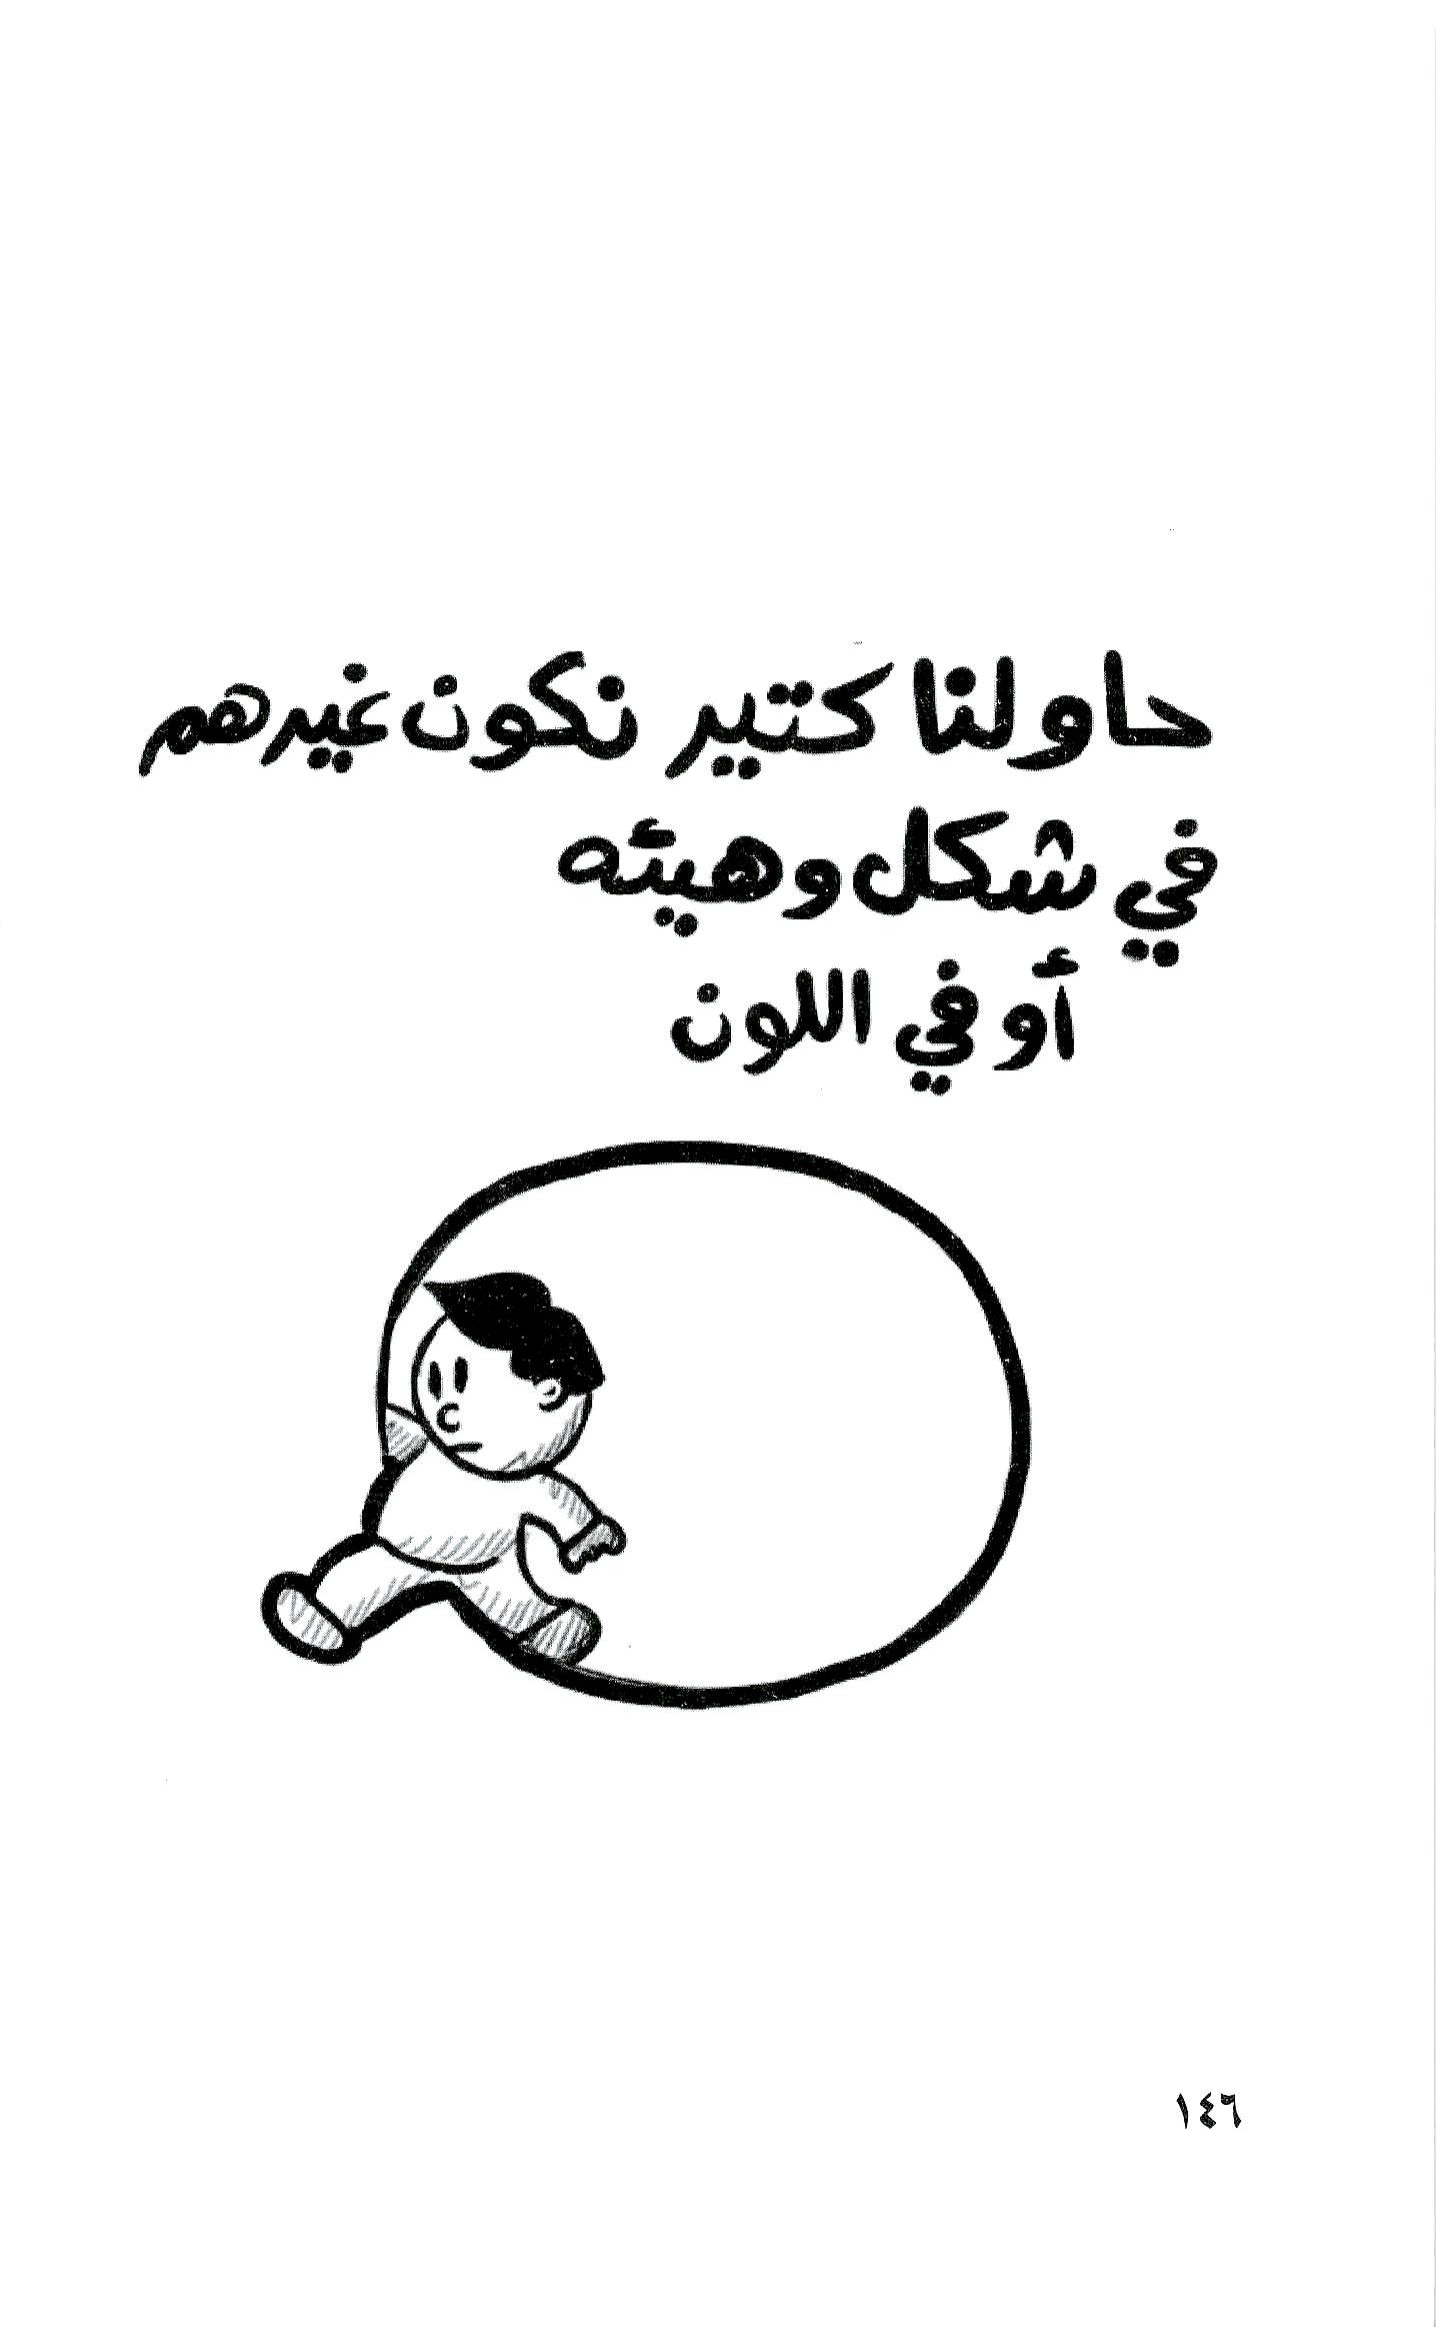 حاولنا كتير نكون غيرهم
في شكل وهيئه
أو في اللون
١٤٦